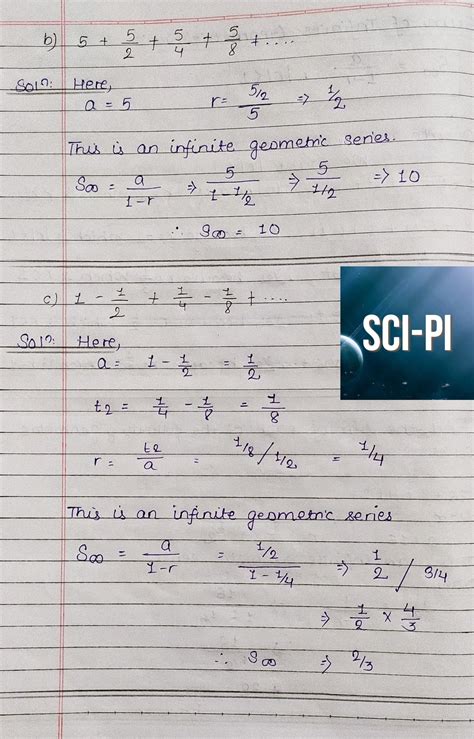 b) 5 + 5/2 + 5/4 + 5/8 + ....
Solⁿ: Here,
a = 5 r = 5/2 / 5 => 1/2
This is an infinite geometric series.
S∞ = a/1-r => 5/1-1/2 => 5/1/2 => 10
∴ S∞ = 10
c) 1 - 1/2 + 1/4 - 1/8 + ....
SCI-PI
Solⁿ: Here,
a = 1 - 1/2 = 1/2
t2 = 1/4 - 1/8 = 1/8
r = t2/a = 1/8 / 1/2 = 1/4
This is an infinite geometric series
S∞ = a/1-r = 1/2 / 1-1/4 => 1/2 / 3/4
=> 1/2 x 4/3
∴ S∞ => 2/3